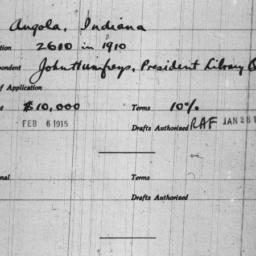 Angola, Indiana
tion 2610 in 1910
pondent John Humfreys, President Library B
of Application
e $10,000 Terms 10%
FEB 6 1915 Drafts Authorised RAF JAN 28 1
nal Terms
Drafts Authorised